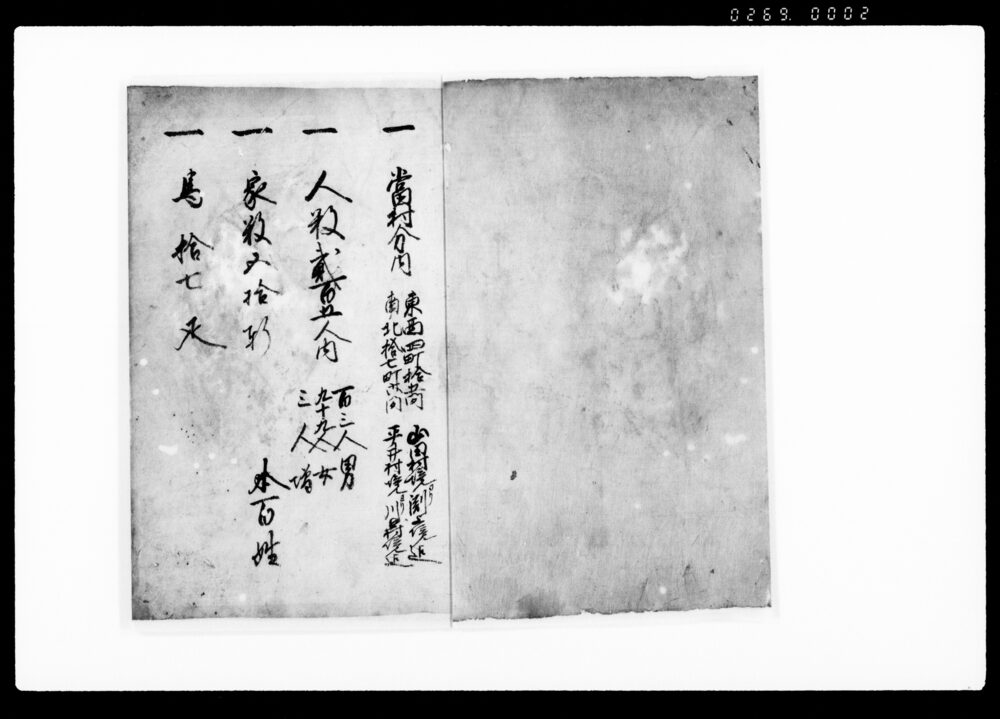 0269. 0002
一 當村分内
東西四町拾間 山田村境ゟ渕上境迄
南北拾七町 間 平井村境ゟ川口村境迄
一 人数貳百五人内
百三人男
九十九人女
三人増
一 家数五拾軒
本百姓
一 馬拾七疋